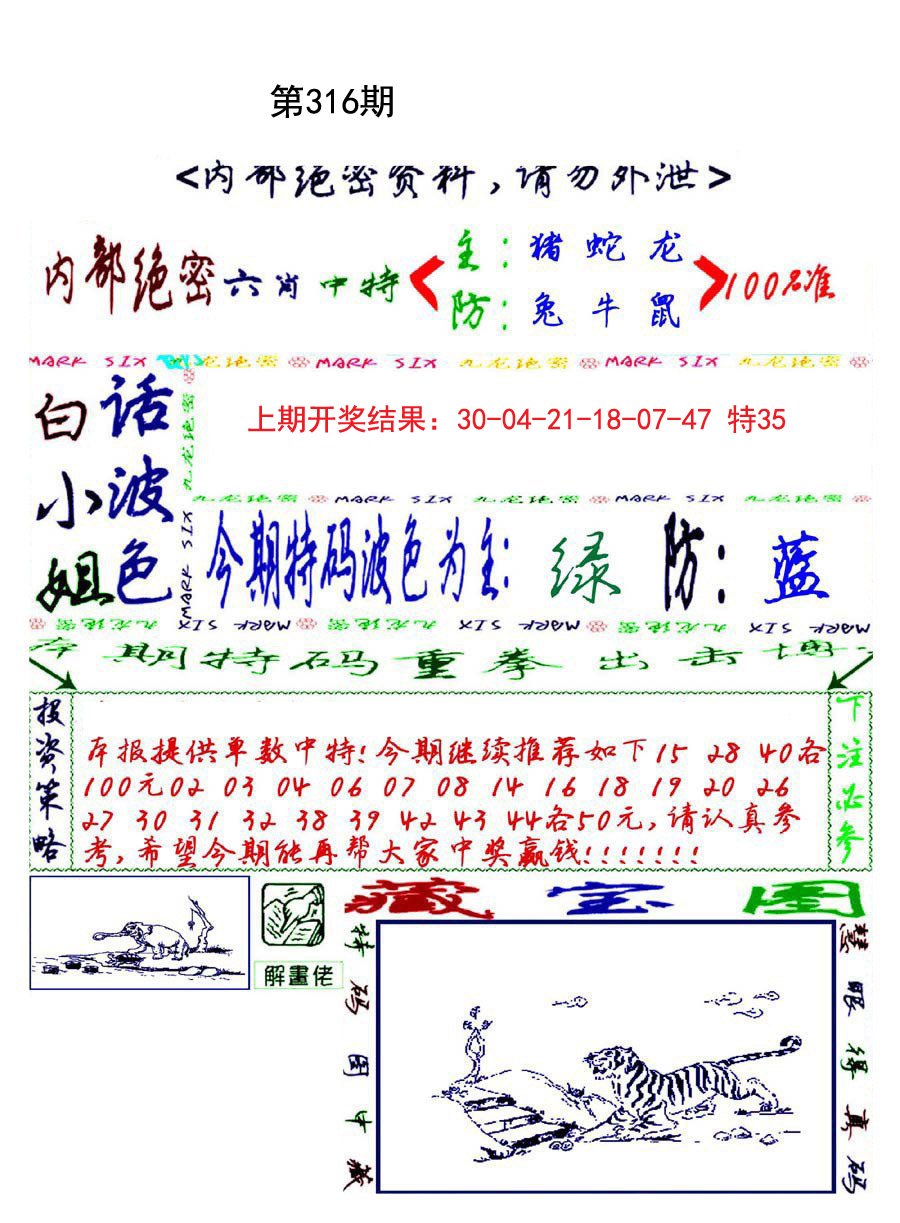 第316期
<内部绝密资料,请勿外泄>
内部绝密六肖中特
主:猪 蛇 龙
防:兔 牛 鼠
100%准
MARK SIX 九龙绝密 MARK SIX 九龙绝密 MARK SIX 九龙绝密
白小姐
话波色
九龙绝密
MARK SIX
上期开奖结果：30-04-21-18-07-47 特35
九龙绝密 MARK SIX 九龙绝密 MARK SIX 九龙绝密
今期特码波色为主: 绿 防: 蓝
九龙绝密 MARK SIX MARK SIX 九龙绝密 MARK SIX MARK SIX 九龙绝密 MARK SIX
本期特码重拳出击博
投资策略
本报提供单数中特!今期继续推荐如下15 28 40各
100元02 03 04 06 07 08 14 16 18 19 20 26
27 30 31 32 38 39 42 43 44各50元,请认真参
考,希望今期能再帮大家中奖赢钱!!!!!!!
下注必参
解畫佬
藏宝图
特码图中藏
慧眼得真码